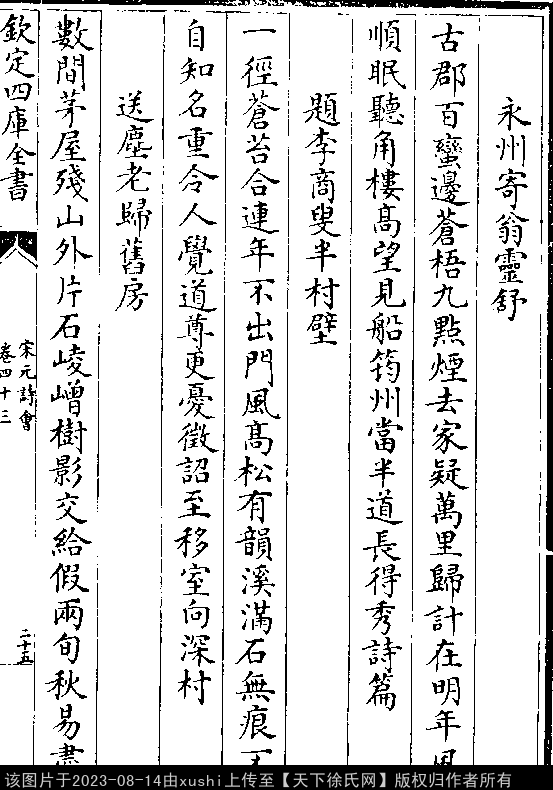 永州寄翁靈舒
古郡百蠻邊蒼梧九點煙去家疑萬里歸計在明年風
順眠聽角樓高望見船筠州當半道長得秀詩篇
題李商叟半村壁
一徑蒼苔合連年不出門風高松有韻溪滿石無痕不
自知名重令人覺道尊更憂徵詔至移室向深村
送塵老歸舊房
數間茅屋殘山外片石崚嶒樹影交給假兩旬秋易盡
欽定四庫全書
宋元詩會
卷四十三
二十五
该图片于2023-08-14由xushi上传至【天下徐氏网】版权归作者所有